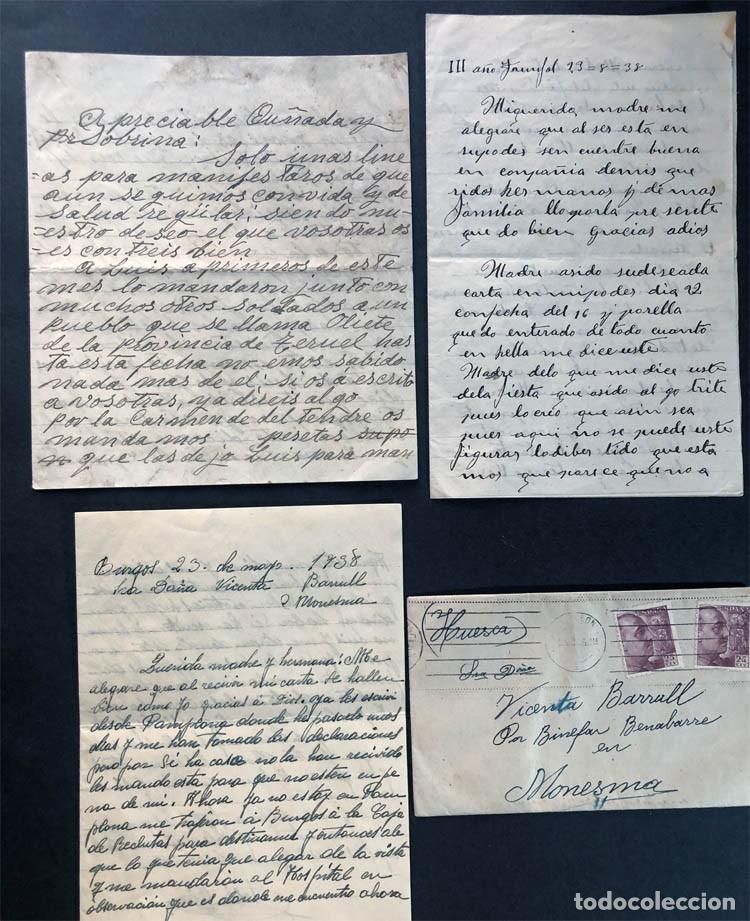 Apreciable Cuñada y
Sobrina:
Solo unas line
as para manifestaros de que
aun seguimos con vida y de
salud regular; siendo nu-
estro deseo el que vosotras os
encontreis bien
A Luis a primeros de este
mes lo mandaron junto con
muchos otros soldados a un
pueblo que se llama Oliete
de la provincia de Teruel has
ta esta fecha no emos sabido
nada mas de el: si os á escrito
a vosotras, ya direis algo
Por la Carmen de del tendre os
mandamos pesetas supo
n que las dejo Luis para man
III año Triunfal 23=8=38
Mi querida madre me
alegraré que al ser esta en
su podes sen cuentre buena
en compañia de mis que
ridos hermanos y demas
familia llo por la pre sente
que do bien gracias adios
Madre asido su deseada
carta en mi podes dia 22
con fecha del 16 y por ella
que do enterado de todo cuanto
en hella me dice uste
Madre de lo que me dice uste
de la fiesta que asido al go trite
pues lo creo que asin sea
pues aqui no se puede uste
figurar lo diber tido que esta
mos que parece que no a
Burgos 23. de mayo. 1938
Sra Doña Vicenta Barrull
Monesma
Querida madre y hermana: Me
alegrare que al recivir mi carta se hallen
bien como yo gracias á Dios. ya les escrivi
desde Pamplona donde he pasado unos
dias y me han tomado les declaraciones
pero por si ha caso no la han recivido
les mando esta para que no esten en pe
na de mi. Ahora ya no estoy en Pam
plona me trajeron á Burgos á la Caja
de Reclutas para destinarme y entonces ale
que lo que tenia que alegar de la vista
y me mandarón al Hospital en
observación que es donde me encuentro ahora
(Huesca)
Sra Doña
Vicenta Barrull
Por Binefar Benabarre
en
Monesma
todocoleccion